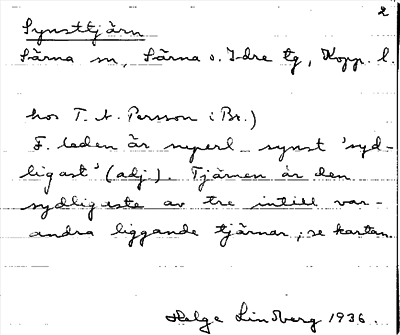 2
Synsttjärn
Särna sn, Särna o. Idre tg, Kopp. l.
hos T. A. Persson i Br.)
F. leden är superl. synst 'syd-
ligast' (adj). Tjärnen är den
sydligaste av tre intill var-
andra liggande tjärnar, se kartan.
Helge Lindberg 1936.